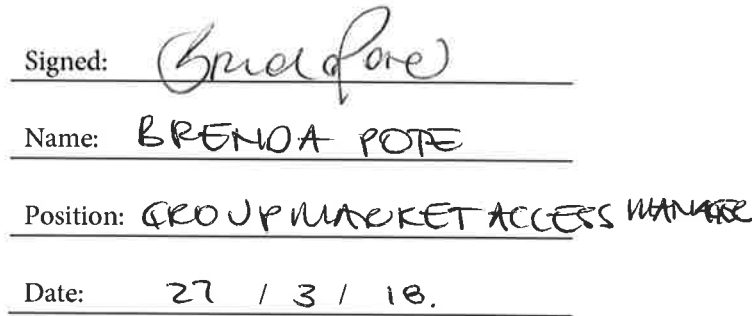 Signed: Brenda Pope
Name: BRENDA POPE
Position: GROUP MARKET ACCESS MANAGER
Date: 27 / 3 / 18.